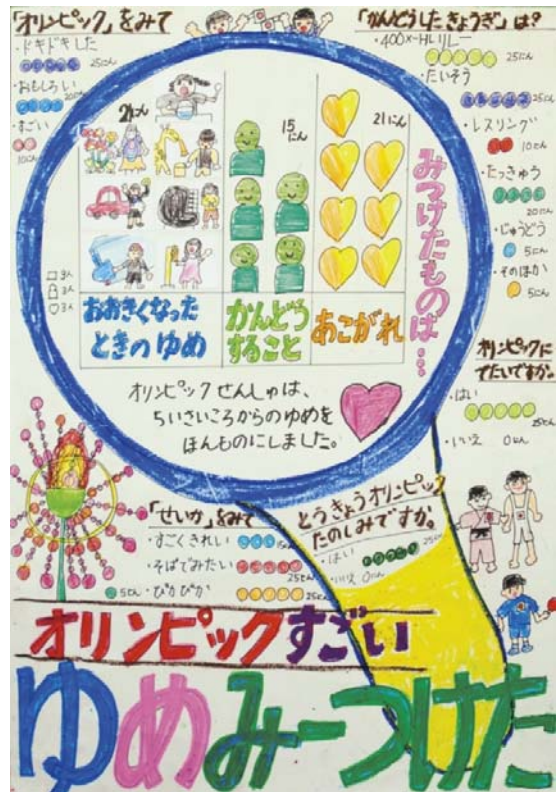 「オリンピック」をみて
・ドキドキした
25にん
・おもしろい
20にん
・すごい
10にん
「かんどうしたきょうぎ」は?
・400メートルリレー
25にん
・たいそう
25にん
・レスリング
10にん
・たっきゅう
20にん
・じゅうどう
5にん
・そのほか
5にん
21にん
15にん
21にん
みつけたものは…
3人
3人
3人
おおきくなった
ときのゆめ
かんどう
すること
あこがれ
オリンピックせんしゅは、
ちいさいころからのゆめを
ほんものにしました。
オリンピックに
でたいですか。
・はい
25にん
・いいえ 0にん
「せいか」をみて
・すごくきれい 15にん
・そばでみたい
25にん
・ぴかぴか
25にん
5にん
とうきょうオリンピック
たのしみですか。
・はい
25にん
・いいえ 0にん
オリンピックすごい
ゆめみーつけた